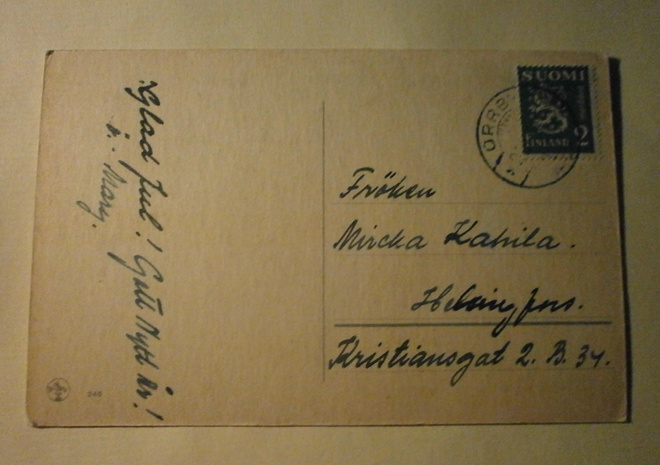 Glad Jul! Gott Nytt År!
ö. Mary.
SUOMI
FINLAND 2
ORRB
Fröken
Mircka Kahila.
Helsingfors.
Kristiansgat 2. B. 34.
545